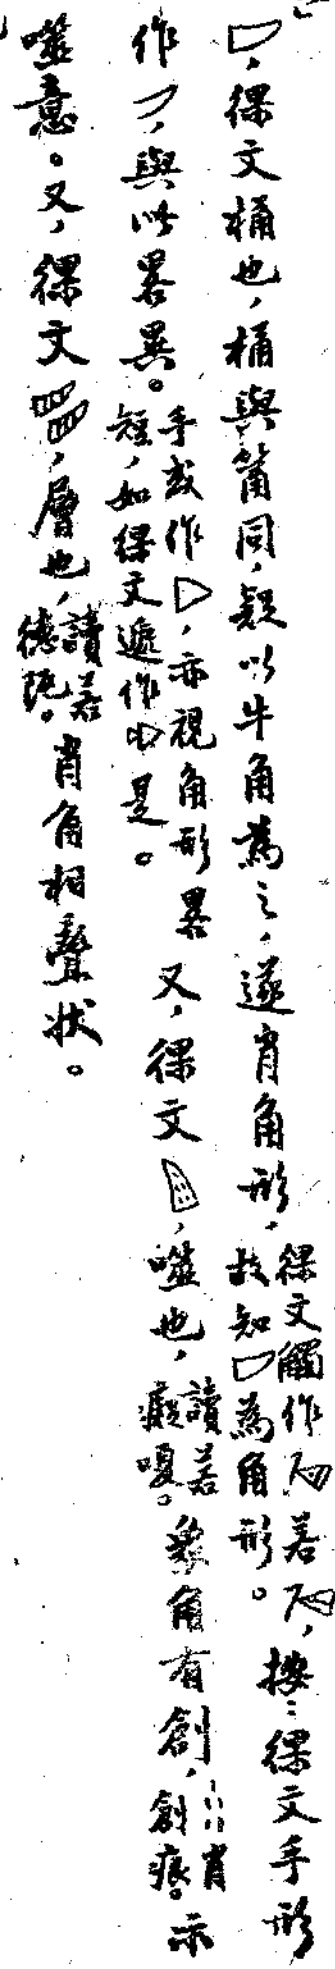 ，倮文桶也，桶與筩同，疑以牛角為之，遂肖角形，倮文觸作若，故知為角形。按：倮文手形
作，與此畧異。手或作，亦視角形畧短，如倮文遞作是。又，倮文，噬也，讀若癡嗄。象角有創，肖創痕。示
噬意。又，倮文，層也，讀若德。肖角相疊狀。